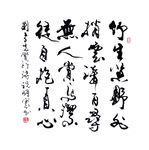 竹生荒野外
梢雲聳百尋
無人賞高節
徒自抱貞心